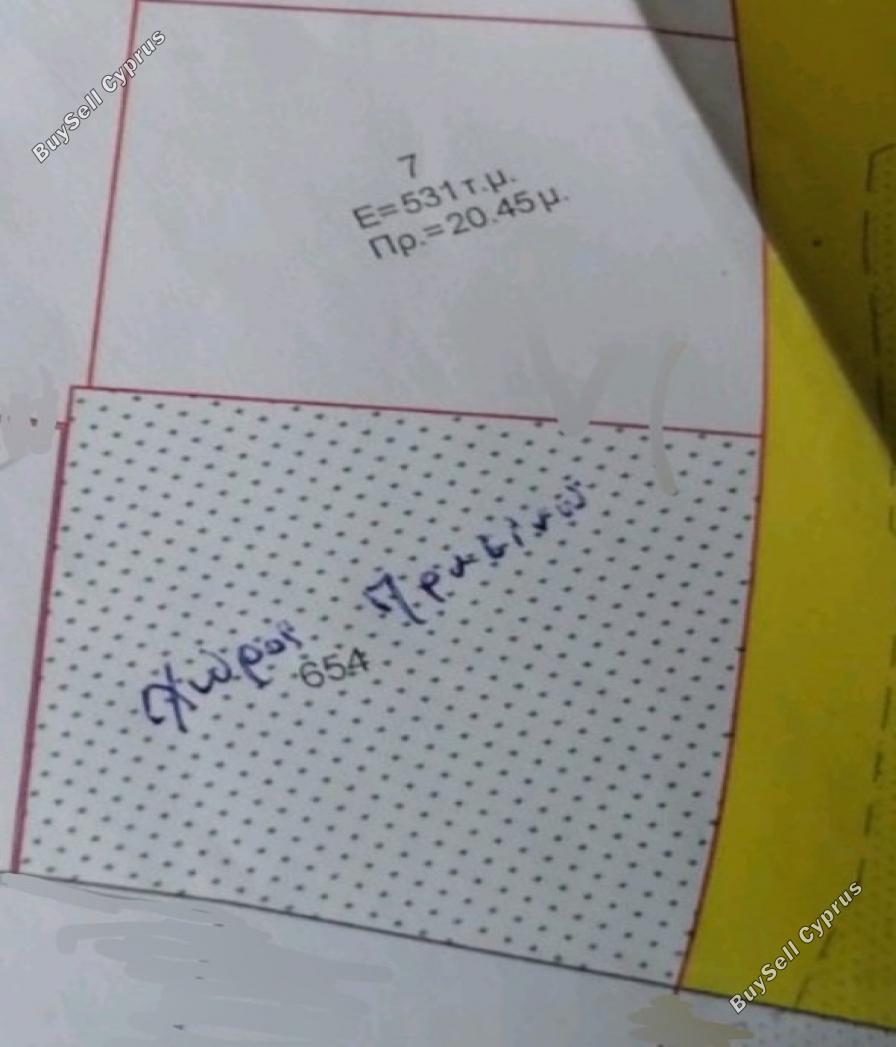 BuySell Cyprus
7
Ε=531τ.μ.
Πρ.=20.45μ.
Χώρος Πρασίνου
654
BuySell Cyprus